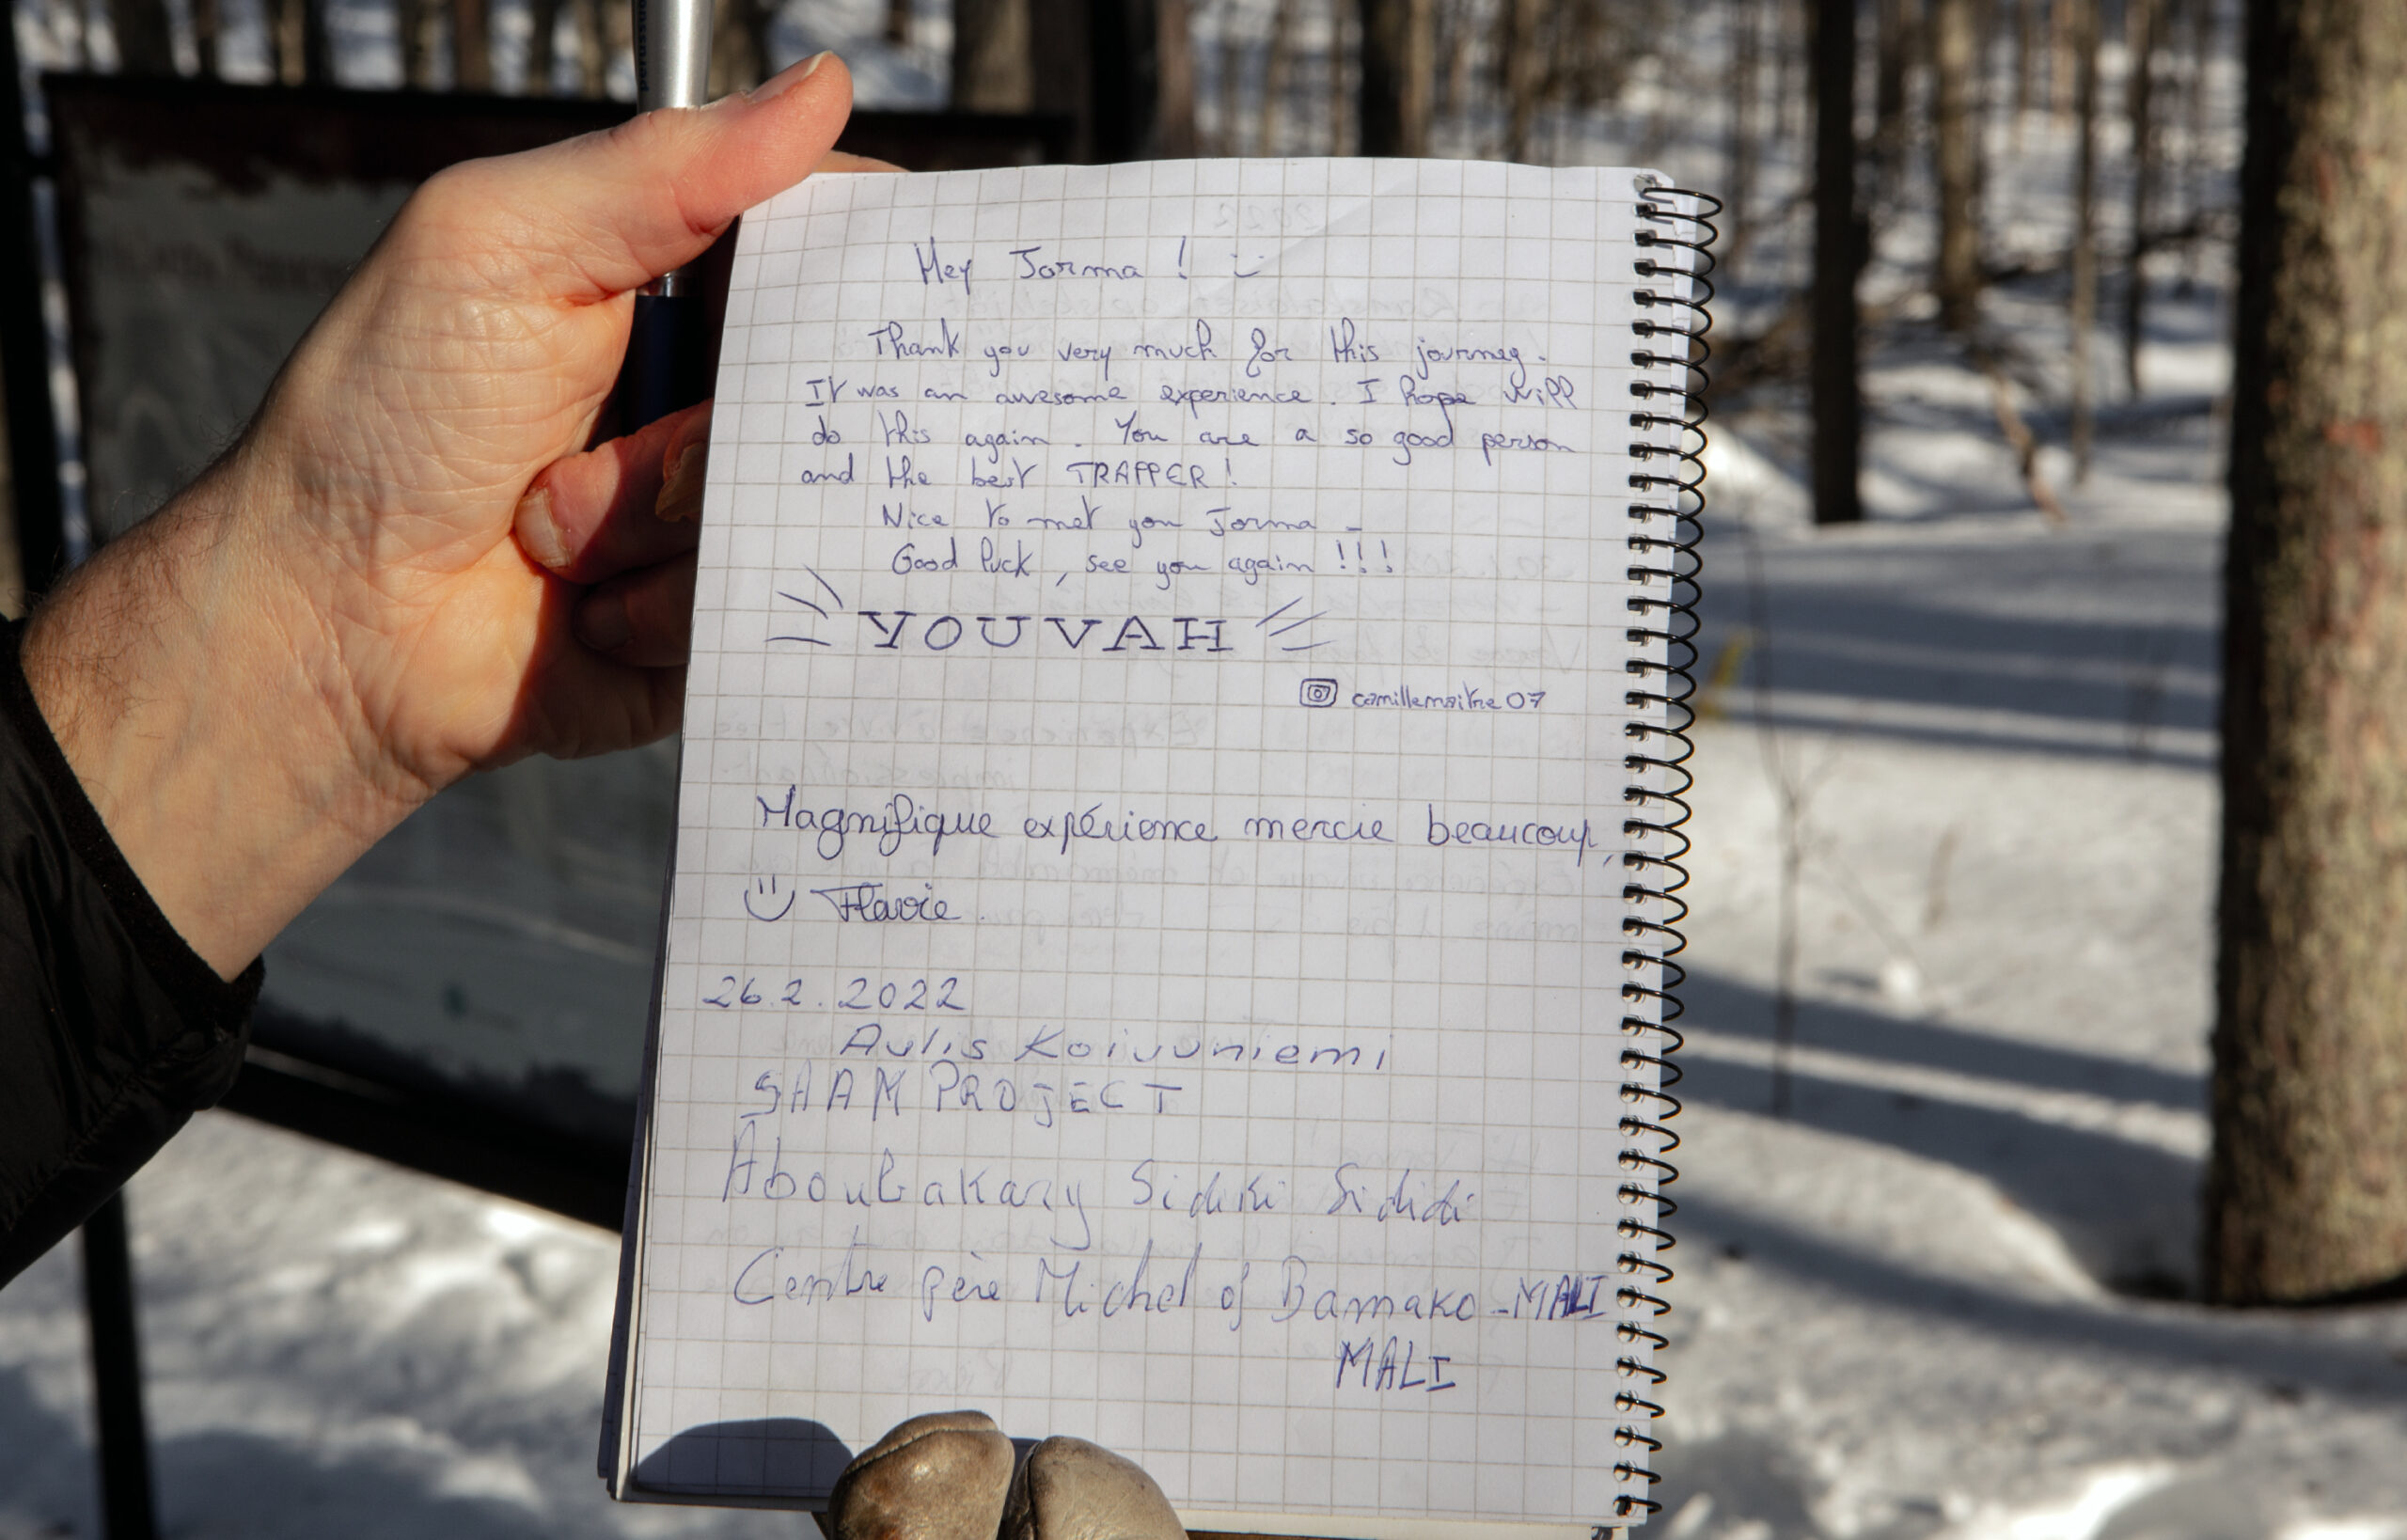 Hey Jorma ! :)
Thank you very much for this journey.
It was an awesome experience. I hope will
do this again. You are a so good person
and the best TRAPPER !
Nice to met you Jorma -
Good luck, see you again !!!
YOUVAH
camillemaitre07
Magnifique expérience mercie beaucoup,
Flavie.
26.2.2022
Aulis Koivuniemi
SAAM PROJECT
Aboubakary Sidiki Sididi
Centre père Michel of Bamako -MALI
MALI